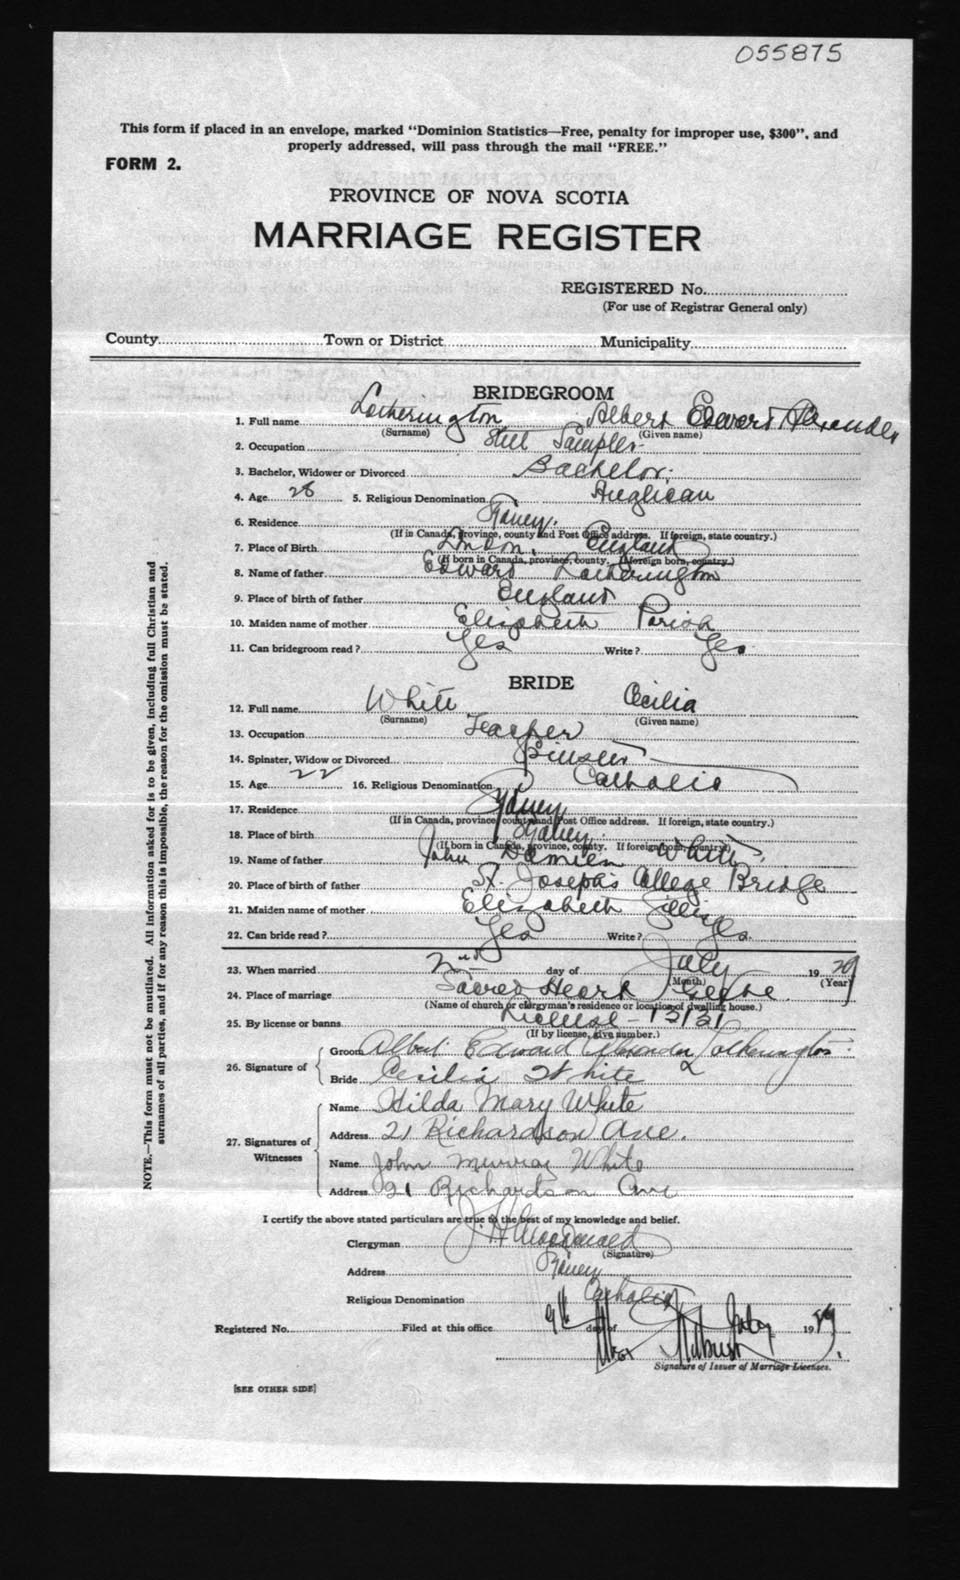 055875
This form if placed in an envelope, marked "Dominion Statistics—Free, penalty for improper use, $300", and
properly addressed, will pass through the mail "FREE."
FORM 2.
PROVINCE OF NOVA SCOTIA
MARRIAGE REGISTER
REGISTERED No.
(For use of Registrar General only)
County Town or District Municipality
BRIDEGROOM
1. Full name Lotherington Albert Edward Alexander
(Surname) (Given name)
2. Occupation Steel Sampler
3. Bachelor, Widower or Divorced Bachelor
4. Age 28 5. Religious Denomination Anglican
6. Residence Sydney.
(If in Canada, province, county and Post Office address. If foreign, state country.)
7. Place of Birth London, England
(If born in Canada, province, county. If foreign born, country.)
8. Name of father Edward Lotherington
9. Place of birth of father England
10. Maiden name of mother Elizabeth Parish
11. Can bridegroom read? Yes Write? Yes
BRIDE
12. Full name White Cecilia
(Surname) (Given name)
13. Occupation Teacher
14. Spinster, Widow or Divorced Spinster
15. Age 22 16. Religious Denomination Catholic
17. Residence Sydney
(If in Canada, province, county and Post Office address. If foreign, state country.)
18. Place of birth Sydney.
(If born in Canada, province, county. If foreign born, country.)
19. Name of father John Damien White
20. Place of birth of father St. Joseph's College Bridge
21. Maiden name of mother Elizabeth Gillis
22. Can bride read? Yes Write? Yes.
23. When married 2nd day of July 1929
(Month) (Year)
24. Place of marriage Sacred Heart
(Name of church or clergyman's residence or location of dwelling house.)
25. By license or banns License - 13121
(If by license, give number.)
26. Signature of Groom Albert Edward Alexander Lotherington
Bride Cecilia White
27. Signatures of Witnesses Name Hilda Mary White
Address 21 Richardson Ave.
Name John Murray White
Address 21 Richardson Ave
I certify the above stated particulars are true to the best of my knowledge and belief.
Clergyman J. H. MacDonald
(Signature)
Address Sydney
Religious Denomination Catholic
Registered No. Filed at this office 9th day of July 1929.
Signature of Issuer of Marriage Licenses.
[SEE OTHER SIDE]
NOTE.—This form must not be mutilated. All information asked for is to be given, including full Christian and
surnames of all parties, and if for any reason this is impossible, the reason for the omission must be stated.